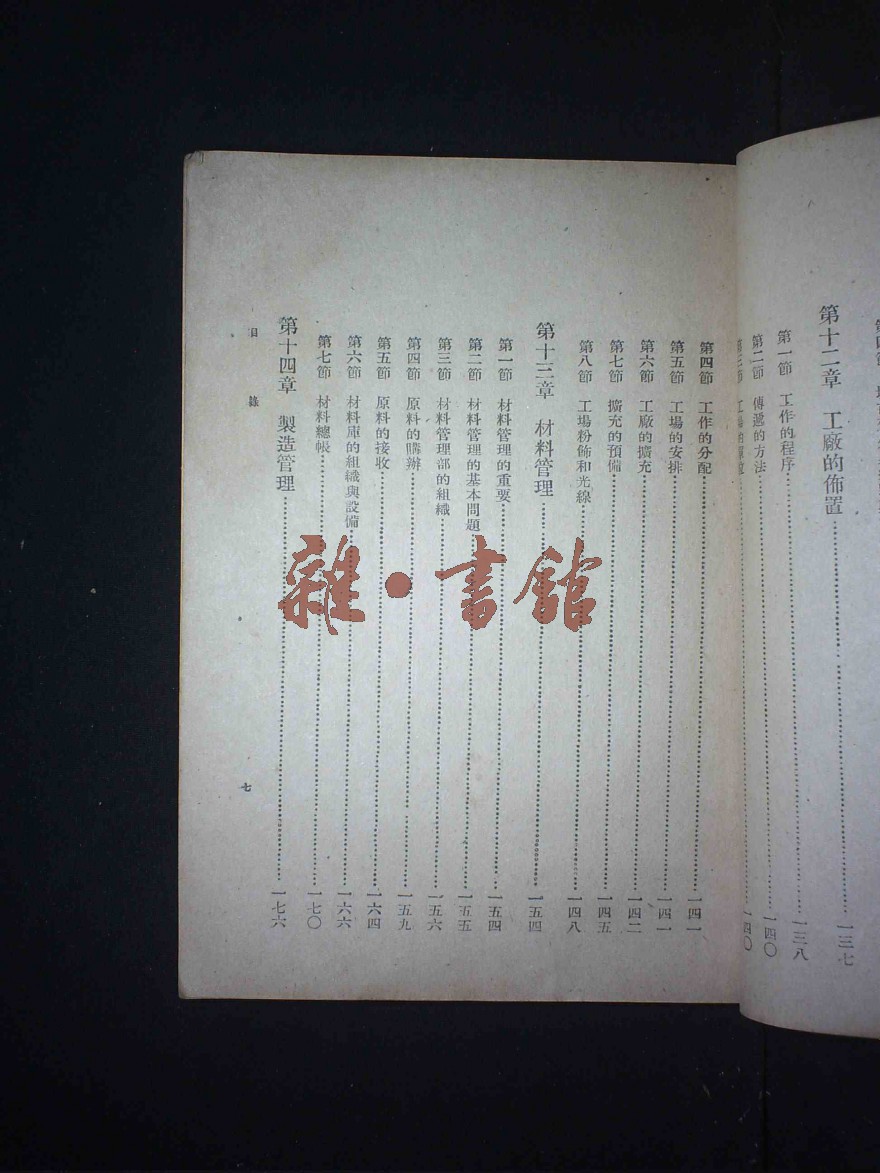 第十二章　工廠的佈置……一三七
第一節　工作的程序……一三八
第二節　傳遞的方法……一四〇
第四節　工作的分配……一四一
第五節　工場的安排……一四一
第六節　工廠的擴充……一四二
第七節　擴充的預備……一四五
第八節　工場粉飾和光線……一四八
第十三章　材料管理……一五四
第一節　材料管理的重要……一五四
第二節　材料管理的基本問題……一五五
第三節　材料管理部的組織……一五六
第四節　原料的購辦……一五九
第五節　原料的接收……一六四
第六節　材料庫的組織與設備……一六六
第七節　材料總帳……一七〇
第十四章　製造管理……一七六
目錄
七
雜·書館